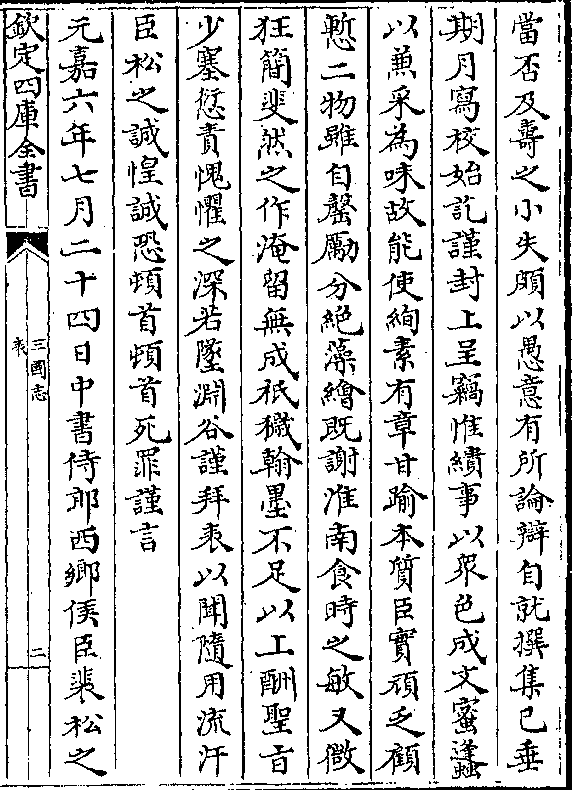 當否及壽之小失頗以愚意有所論辯自就撰集已垂
期月寫校始訖謹封上呈竊惟繢事以衆色成文蜜蠭
以兼采為味故能使絢素有章甘踰本質臣實頑乏顧
慙二物雖自罄勵分絶藻繪既謝淮南食時之敏又微
狂簡斐然之作淹留無成祇穢翰墨不足以上酬聖旨
少塞愆責愧懼之深若墜淵谷謹拜表以聞隨用流汗
臣松之誠惶誠恐頓首頓首死罪謹言
元嘉六年七月二十四日中書侍郎西鄉侯臣裴松之
欽定四庫全書
三國志
表
二